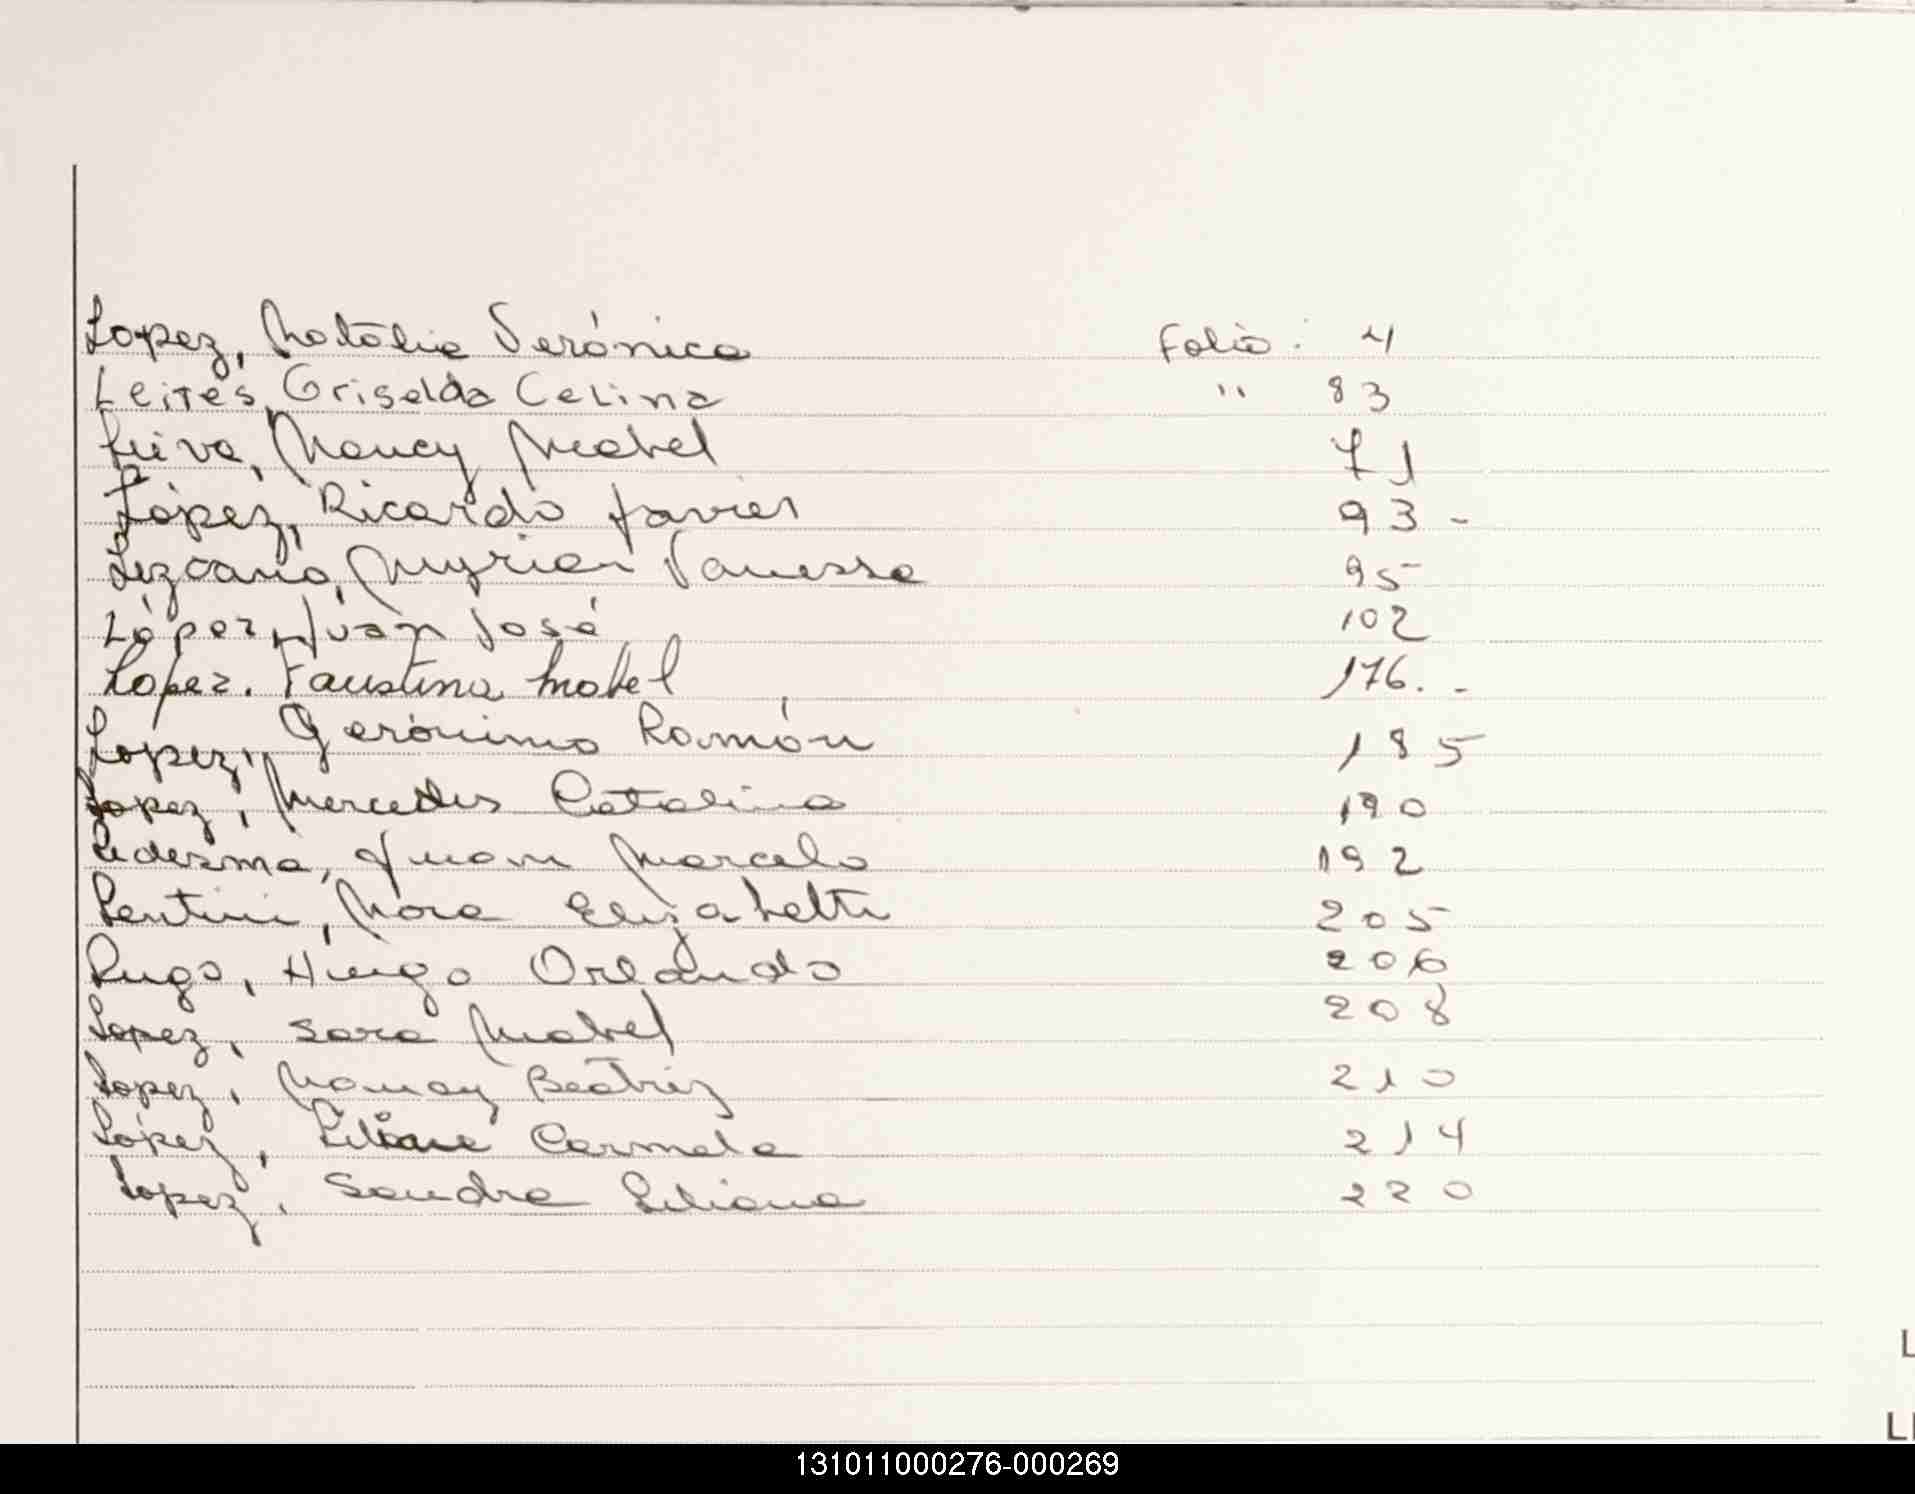 Lopez, Natalia Verónica Folio: 4
Leites, Griselda Celina " 83
Leiva, Nancy Mabel 71
López, Ricardo Javier 93-
Lezcano, Myrian Vanessa 95
López, Juan José 102
Lopez. Faustina Mabel 176.-
Lopez, Gerónimo Ramón 185
Lopez, Mercedes Catalina 190
Ledezma, Juan Marcelo 192
Lentini, Nora Elizabeth 205
Lugo, Hugo Orlando 206
Lopez, Sara Mabel 208
Lopez, Nancy Beatriz 210
López, Liliana Carmela 214
Lopez, Sandra Liliana 220
L
LI
131011000276-000269